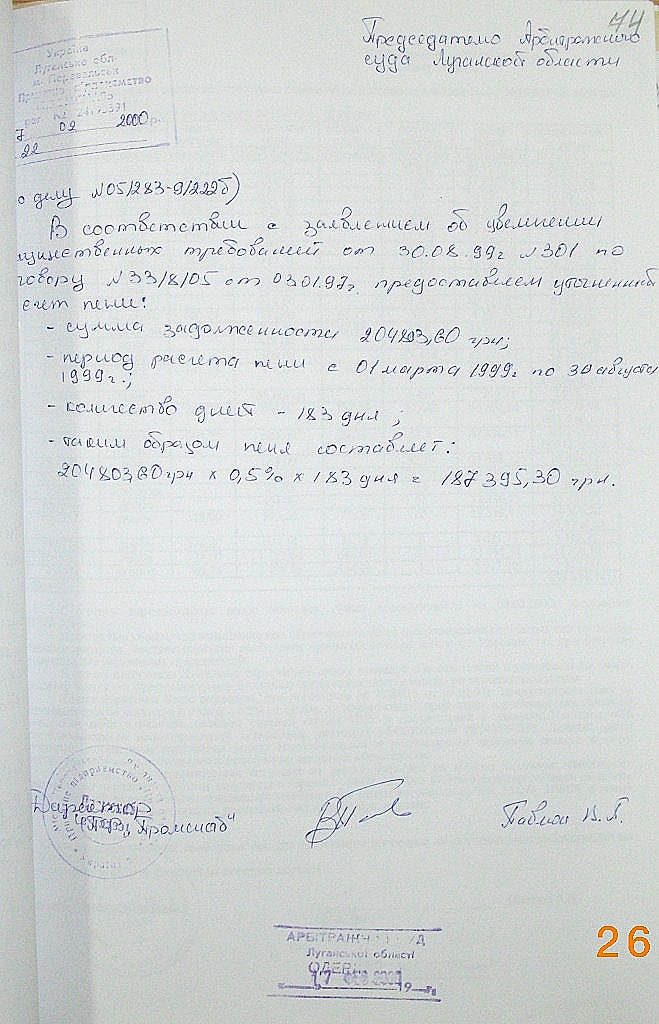 74
Председателю Арбитражного
суда Луганской области
Україна
Луганська обл.
м. Перевальськ
7 02 2000 р.
22
о делу №05/283-9/222б)
В соответствии с заявлением об увеличении
щественных требований от 30.08.99г №301 по
говору №33/8/05 от 03.01.97г. предоставляем уточненный
счет пени:
- сумма задолженности 204803,60 грн;
- период расчета пени с 01 марта 1999г по 30 августа
1999г.;
- количество дней - 183 дня;
- таким образом пеня составляет:
204803,60 грн х 0,5% х 183 дня = 187395,30 грн.
Директор
Промснаб"
АРБІТРАЖН СУД
Луганської області
17 2000
26